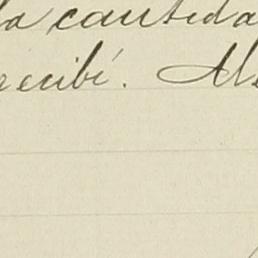 la cantida
recibí. Me